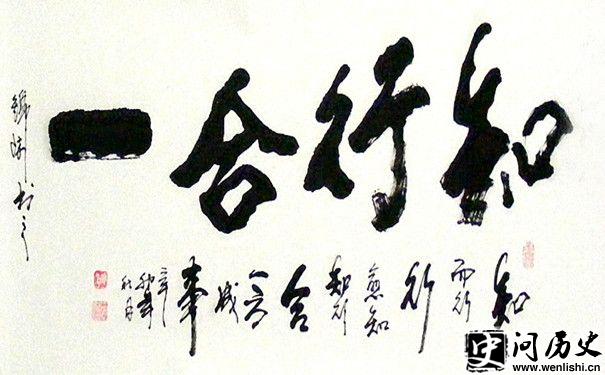 知行合一
知
而行
行
愈知
知行
合
成
事
秋月
问历史
www.wenlishi.cn